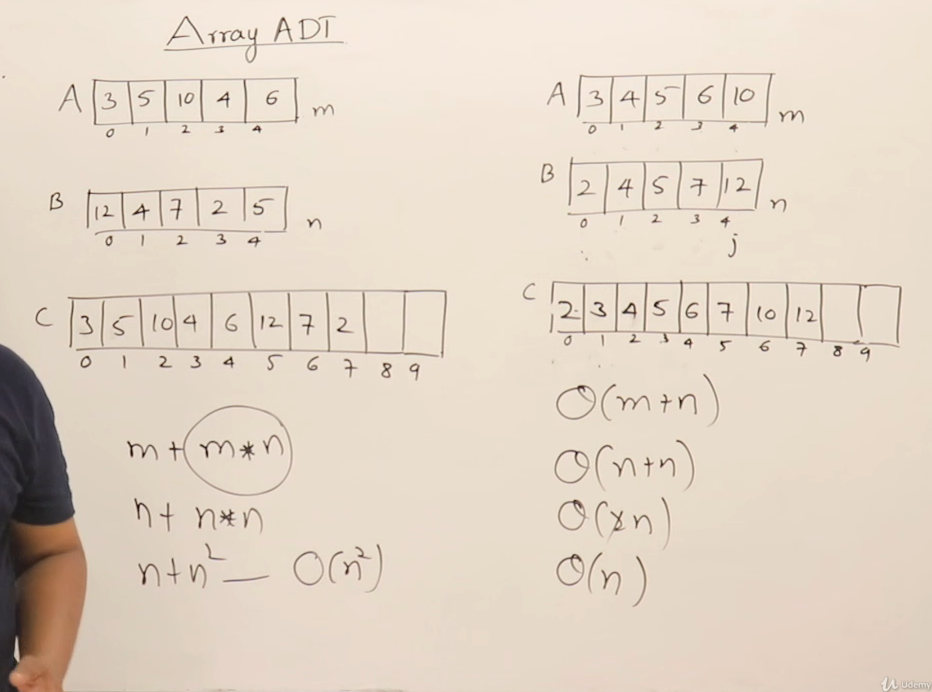 Array ADT
A 3 5 10 4 6 m
0 1 2 3 4
B 12 4 7 2 5 n
0 1 2 3 4
C 3 5 10 4 6 12 7 2
0 1 2 3 4 5 6 7 8 9
m + m * n
n + n * n
n + n² — O(n²)
A 3 4 5 6 10 m
0 1 2 3 4
B 2 4 5 7 12 n
0 1 2 3 4
j
C 2 3 4 5 6 7 10 12
0 1 2 3 4 5 6 7 8 9
O(m+n)
O(n+n)
O(2n)
O(n)
Udemy